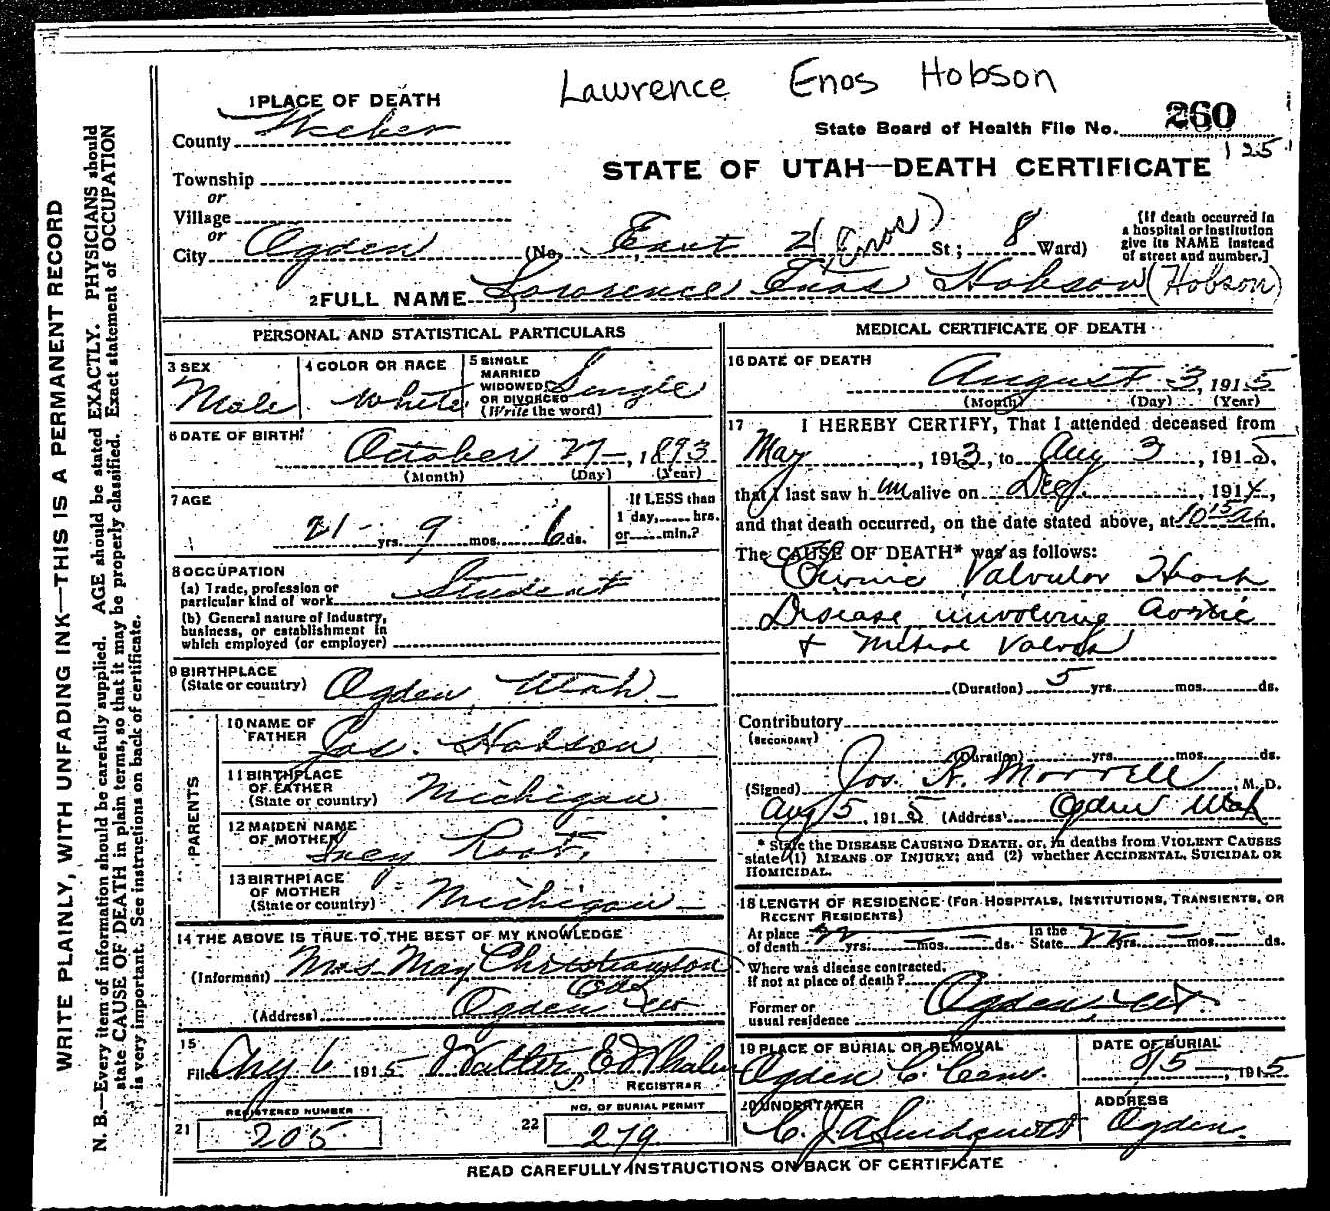 Lawrence Enos Hobson
1 PLACE OF DEATH
County Weber
State Board of Health File No. 260
125
STATE OF UTAH—DEATH CERTIFICATE
Township
or
Village
or
City Ogden (No. East 21 St; 8 Ward)
(Enos)
[If death occurred in
a hospital or institution
give its NAME instead
of street and number.]
2 FULL NAME Lawrence Enos Hobson (Hobson)
PERSONAL AND STATISTICAL PARTICULARS
3 SEX
Male
4 COLOR OR RACE
White
5 SINGLE
MARRIED
WIDOWED
OR DIVORCED
(Write the word)
Single
6 DATE OF BIRTH
October 27, 1893
(Month) (Day) (Year)
7 AGE
21 yrs. 9 mos. 6 ds.
If LESS than
1 day, hrs.
or min.?
8 OCCUPATION
(a) Trade, profession or
particular kind of work Student
(b) General nature of Industry,
business, or establishment in
which employed (or employer)
9 BIRTHPLACE
(State or country) Ogden, Utah
PARENTS
10 NAME OF
FATHER Jas. Hobson
11 BIRTHPLACE
OF FATHER
(State or country) Michigan
12 MAIDEN NAME
OF MOTHER Root
13 BIRTHPLACE
OF MOTHER
(State or country) Michigan
14 THE ABOVE IS TRUE TO THE BEST OF MY KNOWLEDGE
(Informant) Mrs May Christianson
(Address) Ogden
15
Filed Aug 6 1915 Walter E Whalen
REGISTRAR
REGISTERED NUMBER
21 205
NO. OF BURIAL PERMIT
22 279
MEDICAL CERTIFICATE OF DEATH
16 DATE OF DEATH
August 3, 1915
(Month) (Day) (Year)
17 I HEREBY CERTIFY, That I attended deceased from
May, 1913, to Aug 3, 1915,
that I last saw h im alive on Dec, 1914,
and that death occurred, on the date stated above, at 10 15 a m.
The CAUSE OF DEATH* was as follows:
Chronic Valvular Heart
Disease involving Aortic
+ Mitral Valves
(Duration) 5 yrs. mos. ds.
Contributory
(SECONDARY)
(Duration) yrs. mos. ds.
(Signed) Jos. R. Morrell, M. D.
Aug 5, 1915 (Address) Ogden Utah
* State the DISEASE CAUSING DEATH, or, in deaths from VIOLENT CAUSES
state (1) MEANS OF INJURY; and (2) whether ACCIDENTAL, SUICIDAL OR
HOMICIDAL.
18 LENGTH OF RESIDENCE (FOR HOSPITALS, INSTITUTIONS, TRANSIENTS, OR
RECENT RESIDENTS)
At place
of death 22 yrs. — mos. — ds. In the
State 22 yrs. — mos. — ds.
Where was disease contracted,
if not at place of death?
Former or
usual residence Ogden, Ut
19 PLACE OF BURIAL OR REMOVAL
Ogden C. Cem.
DATE OF BURIAL
8/5, 1915
20 UNDERTAKER
C. J. A. Lindquist
ADDRESS
Ogden.
READ CAREFULLY INSTRUCTIONS ON BACK OF CERTIFICATE
WRITE PLAINLY, WITH UNFADING INK—THIS IS A PERMANENT RECORD
N. B.—Every item of information should be carefully supplied. AGE should be stated EXACTLY. PHYSICIANS should
state CAUSE OF DEATH in plain terms, so that it may be properly classified. Exact statement of OCCUPATION
is very important. See instructions on back of certificate.